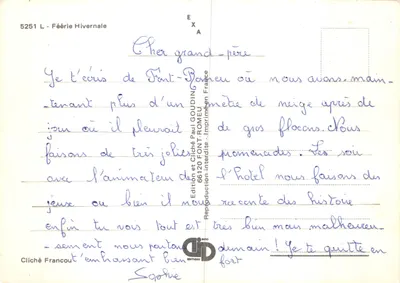 5251 L - Féérie Hivernale
EXA
Cher grand-père
Je t'écris de Font-Romeu où nous avons main-
tenant plus d'un mètre de neige après de
jour où il pleuvait de gros flocons. Nous
faisons de très jolies promenades. Les soir
avec l'animateur de l'hotel nous faisons des
jeux ou bien il nous raconte des histoire
enfin tu vois tout est très bien mais malheureu-
-sement nous partons demain ! Je te quitte en
t'embrassant bien fort
Edition et Cliché Paul GOUDIN
66120 FONT-ROMEU
Reproduction interdite - Imprimé en France
Cliché Francou